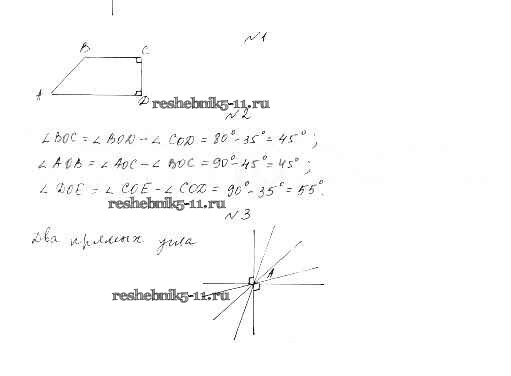 №1
B C
A D
reshebnik5-11.ru
№2
∠BOC = ∠BOD - ∠COD = 80° - 35° = 45°;
∠AOB = ∠AOC - ∠BOC = 90° - 45° = 45°;
∠DOE = ∠COE - ∠COD = 90° - 35° = 55°.
reshebnik5-11.ru
№3
Два прямых угла
A
reshebnik5-11.ru